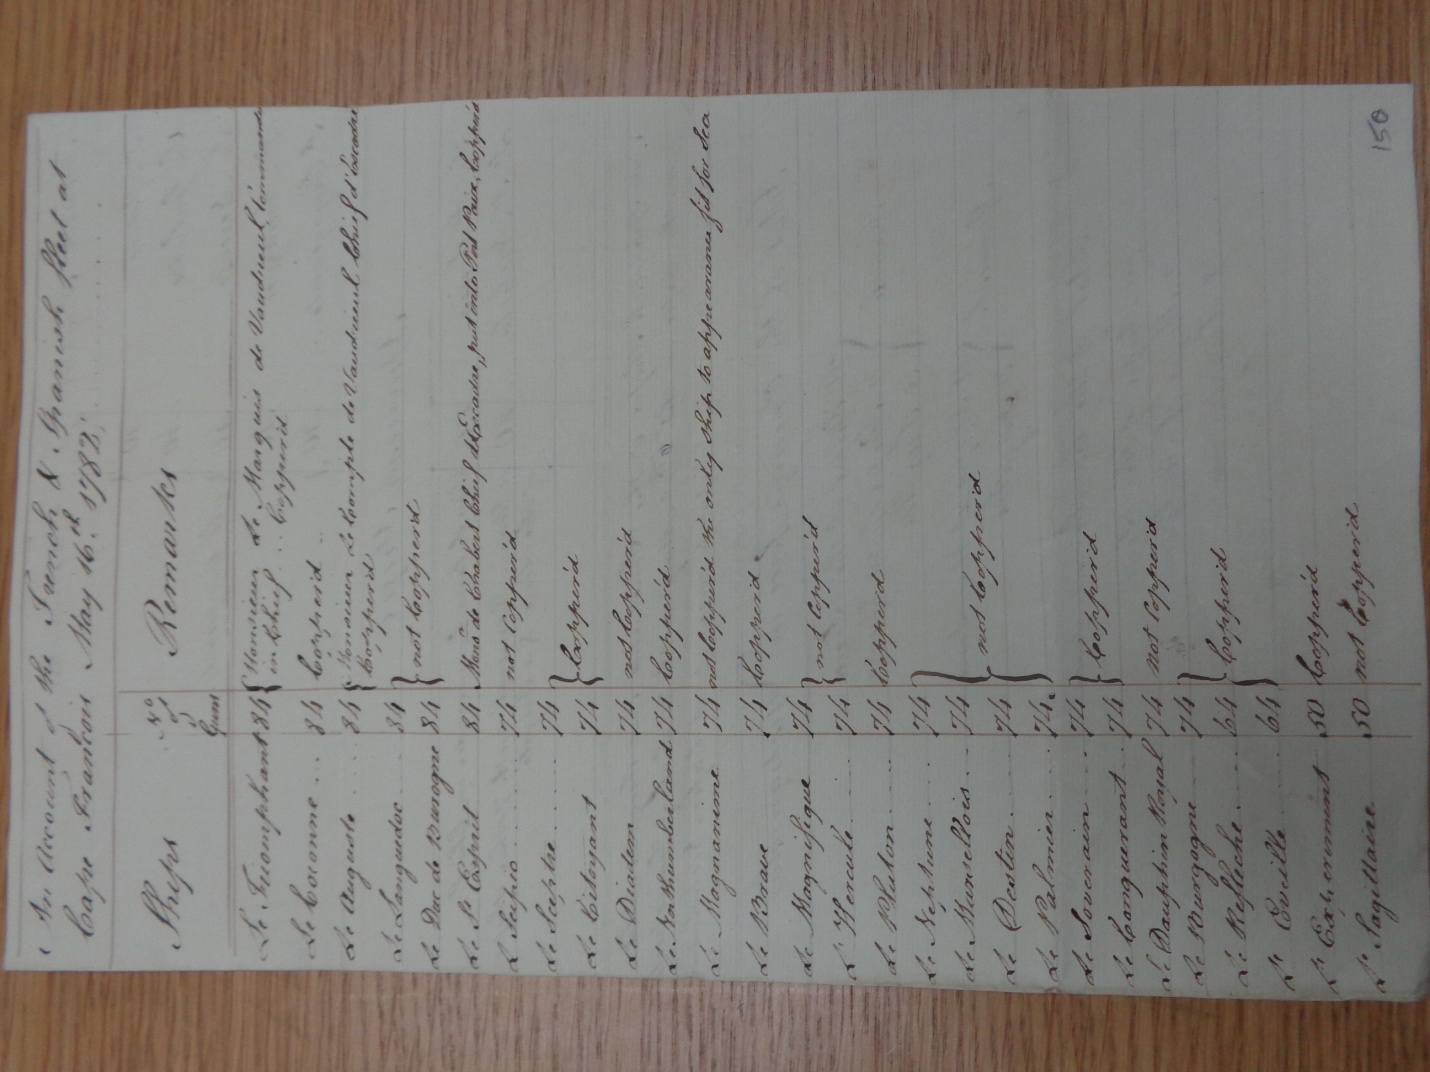 An Account of the French & Spanish fleet at
Cape Français May 16th. 1782.
Ships No of Guns Remarks
Le Triomphant 84 { Monsieur Le Marquis de Vaudreuil Commandr
in Chief ... Copperd
Le Coronne ... 84 Copperd ..
Le Auguste ... 84 { Monsieur Le Compte de Vaudrieul Chief d'Escadre
Copperd
Le Languedoc ... 84 } not Copperd
Le Duc de Burogne 84
Le St. Esprit ... 84 Monr. de Chabert Chief d'Escadre, put into Port Paix, Copperd
Le Scipio ... 74 not Copperd
Le Sceptre ... 74 } Copperd
Le Citoyant 74
Le Diadem ... 74 not Copperd
Le Northumberland 74 Copperd
Le Magnanime 74 not Copperd the only Ship to appearance fit for Sea
Le Brave ... 74 Copperd
Le Magnifique 74 } not Copperd
L' Hercule ... 74
Le Pluton ... 74 Copperd
Le Neptune ... 74 } not Copperd
Le Marsellois ... 74
Le Destin ... 74
Le Palmier ... 74
Le Souverain ... 74 } Copperd
Le Conquerant ... 74
Le Dauphin Royal 74 not Copperd
Le Burgogne ... 74 } Copperd
Le Refleche ... 64
L' Eveille ... 64
L' Experiment 50 Copperd
L' Sagittaire 50 not Copperd
150